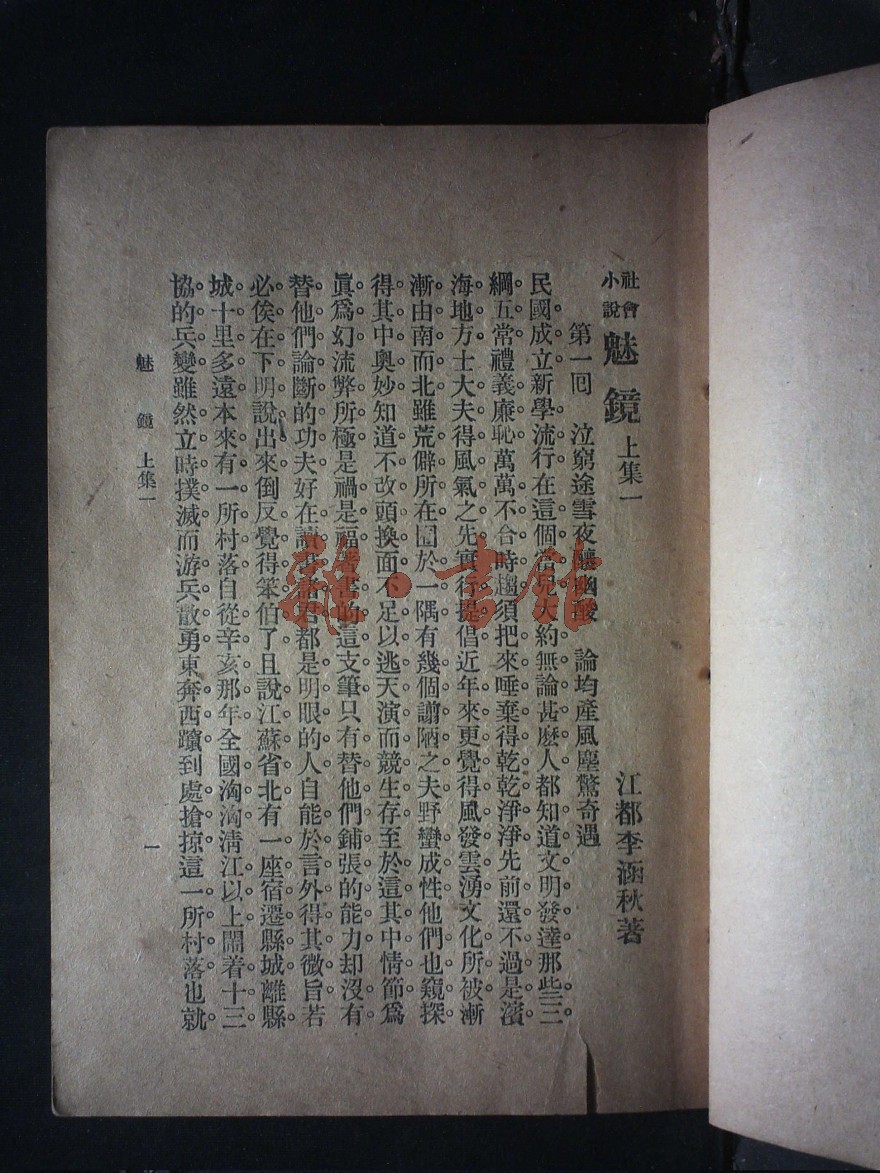 社會小說 魅鏡 上集一
江都李涵秋著
第一回 泣窮途雪夜釀幽酸 論均產風塵驚奇遇
民國成立。新學流行。在這個當兒。大約無論甚麼人。都知道文明發達。那些三
綱五常禮義廉恥。萬萬不合時趨。須把來唾棄得乾乾淨淨。先前還不過是濱
海地方。士大夫得風氣之先。實行提倡。近年來更覺得風發雲湧。文化所被。漸
漸由南而北。雖荒僻所在。囿於一隅。有幾個謭陋之夫。野蠻成性。他們也窺探
得其中奧妙。知道不改頭換面。不足以逃天演而競生存。至於這其中情節。爲
眞爲幻。流弊所極。是禍是福。著書的這支筆。只有替他們鋪張的能力。却沒有
替他們論斷的功夫。好在讀書諸君。都是明眼的人。自能於言外得其微旨。若
必俟在下明說出來。倒反覺得笨伯了。且說江蘇省北有一座宿遷縣城。離縣
城十里多遠。本來有一所村落。自從辛亥那年。全國洶洶。淸江以上鬧着十三
協的兵變。雖然立時撲滅。而游兵散勇。東奔西躥。到處搶掠。這一所村落也就
魅鏡 上集一
一
龍·書館